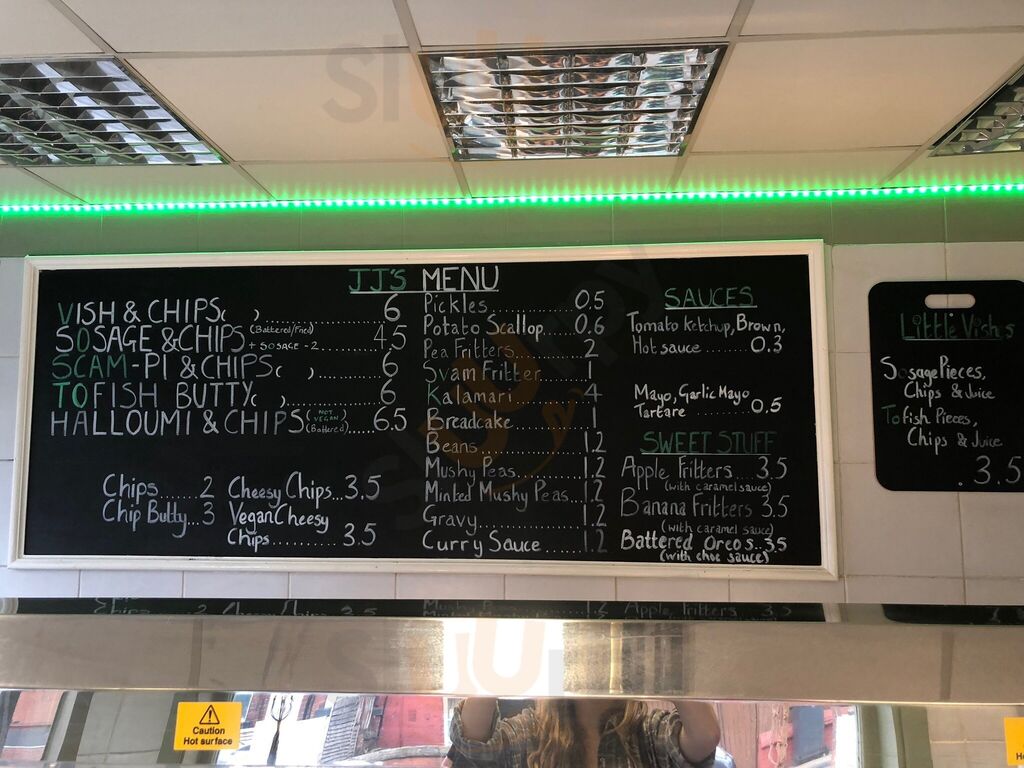 JJ'S MENU
VISH & CHIPS( )............6
SOSAGE & CHIPS (Battered/Fried) + SOSAGE - 2......4,5
SCAM-PI & CHIPS( )..........6
TOFISH BUTTY( )............6
HALLOUMI & CHIPS (NOT VEGAN) (Battered)......6.5
Chips......2
Chip Butty...3
Cheesy Chips...3.5
Vegan Cheesy
Chips..........3.5
Pickles..........0.5
Potato Scallop....0.6
Pea Fritters.......2
Svam Fritter......1
Kalamari..........4
Breadcake........1
Beans............1.2
Mushy Peas......1.2
Minted Mushy Peas...1.2
Gravy............1.2
Curry Sauce......1.2
SAUCES
Tomato Ketchup, Brown,
Hot sauce........0.3
Mayo, Garlic Mayo
Tartare..........0.5
SWEET STUFF
Apple Fritters...3.5
(with caramel sauce)
Banana Fritters 3.5
(with caramel sauce)
Battered Oreos..3.5
(with choc sauce)
Little Vishs
Sosage Pieces,
Chips & Juice
Tofish Pieces,
Chips & Juice
.3.5
Caution
Hot surface
sluurpy